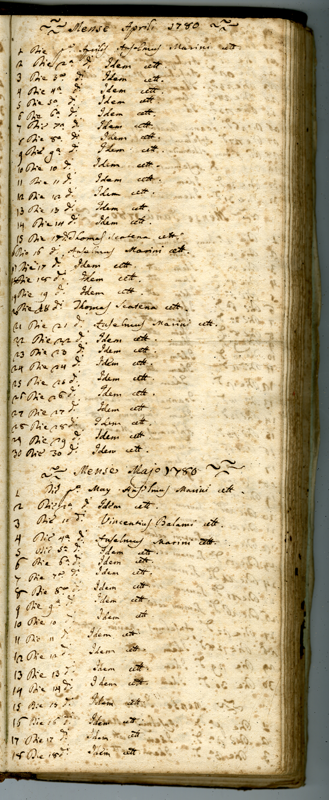 Mense Aprili 1780
1 Die pa Aprilis Anselmus Marini cett.
2 Die 2a di Idem cett
3 Die 3a di Idem cett
4 Die 4a di Idem cett
5 Die 5a di Idem cett
6 Die 6a di Idem cett.
7 Die 7a di Idem cett.
8 Die 8a di Idem cett
9 Die 9a di Idem cett
10 Die 10 di Idem cett.
11 Die 11 di Idem cett.
12 Die 12 di Idem cett
13 Die 13 di Idem cett
14 Die 14 di Idem cett
15 Die Thomas Scatena cett.
Die 16 di Anselmus Marini cett.
Die 17 di Idem cett
Die 18 di Idem cett
Die 19 di Idem cett
Die di Thomas Scatena cett.
21 Die 21 di Anselmus Marini cett.
22 Die 22 di Idem cett.
23 Die 23 di Idem cett
24 Die 24 di Idem cett.
25 Die di Idem cett.
26 Die 26 di Idem cett
27 Die 27 di Idem cett
28 Die 28 di Idem cett
29 Die 29 di Idem cett
30 Die 30 di Idem cett.
Mense Majo 1780
1 Die pa May Anselmus Marini cett.
2 Die 2a di Idem cett
3 Die di Vincentius Balami cett.
4 Die 4a di Anselmus Marini cett.
5 Die 5a di Idem cett.
6 Die 6a di Idem cett
7 Die 7a di Idem cett
8 Die 8a di Idem cett
9 Die 9a di Idem cett
10 Die 10 di Idem cett
11 Die 11 di Idem cett
12 Die 12 di Idem cett
13 Die 13 di Idem cett
14 Die 14 di Idem cett
15 Die 15 di Idem cett
16 Die 16 di Idem cett
17 Die 17 di Idem cett
18 Die 18 di Idem cett